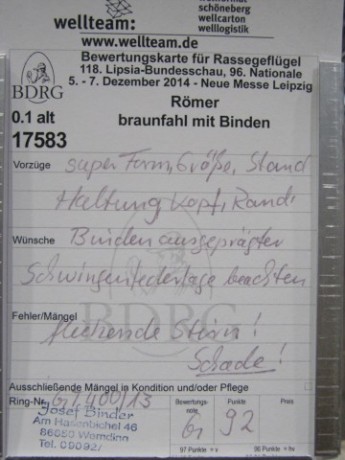 wellteam:
schöneberg
wellcarton
welllogistik
www.wellteam.de
Bewertungskarte für Rassegeflügel
118. Lipsia-Bundesschau, 96. Nationale
5. - 7. Dezember 2014 - Neue Messe Leipzig
BDRG
Römer
0.1 alt
braunfahl mit Binden
17583
Vorzüge super Form, Größe, Stand
Haltung, Kopf, Rand
Wünsche Binden ausgeprägter
Schwingenfederlage beachten
Fehler/Mängel
fliehende Stirn!
Schade!
Ausschließende Mängel in Kondition und/oder Pflege
Ring-Nr.
Josef Binder
Am Hasenbichel 46
86650 Wemding
Tel. 09092/
Bewertungs-
note
Punkte
Preis
92
97 Punkte = v
96 Punkte = hv